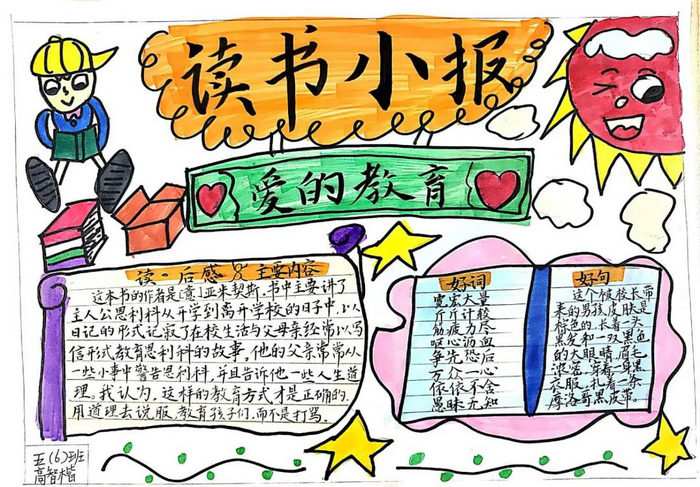 读书小报
爱的教育
读·后感&主要内容
这本书的作者是[意]亚米契斯.书中主要讲了
主人公恩利科从开学到离开学校的日子中,以
日记的形式记叙了在校生活与父母亲经常以写
信形式教育恩利科的故事。他的父亲常常从
一些小事中警告恩利科,并且告诉他一些人生道
理。我认为,这样的教育方式才是正确的.
用道理去说服教育孩子们,而不是打骂。
好词
宽宏大量
斤斤计较
筋疲力尽
呕心沥血
争先恐后
万众一心
依依不舍
愚昧无知
好句
这个被校长带
来的男孩皮肤是
棕色的.长着一头
黑发和一双黑血
的大眼睛.眉毛
浓密.穿着一身黑
衣服.扎着一条
摩洛哥黑皮带。
五(6)班
高智楷